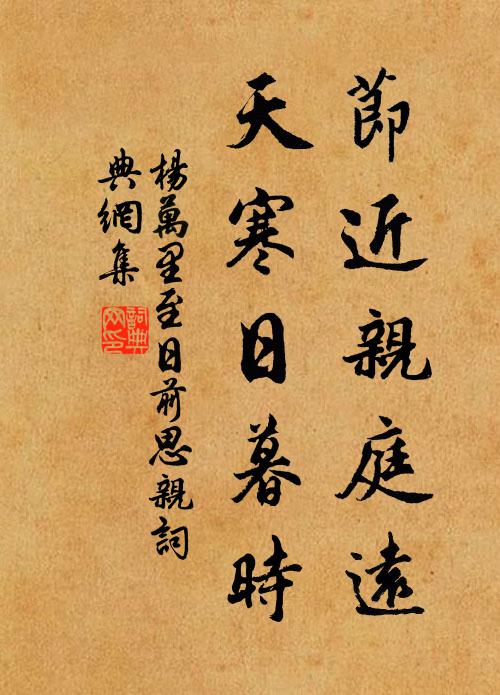 節近親庭遠
天寒日暮時
楊萬里至日前思親詞
典網集
詞典
网印